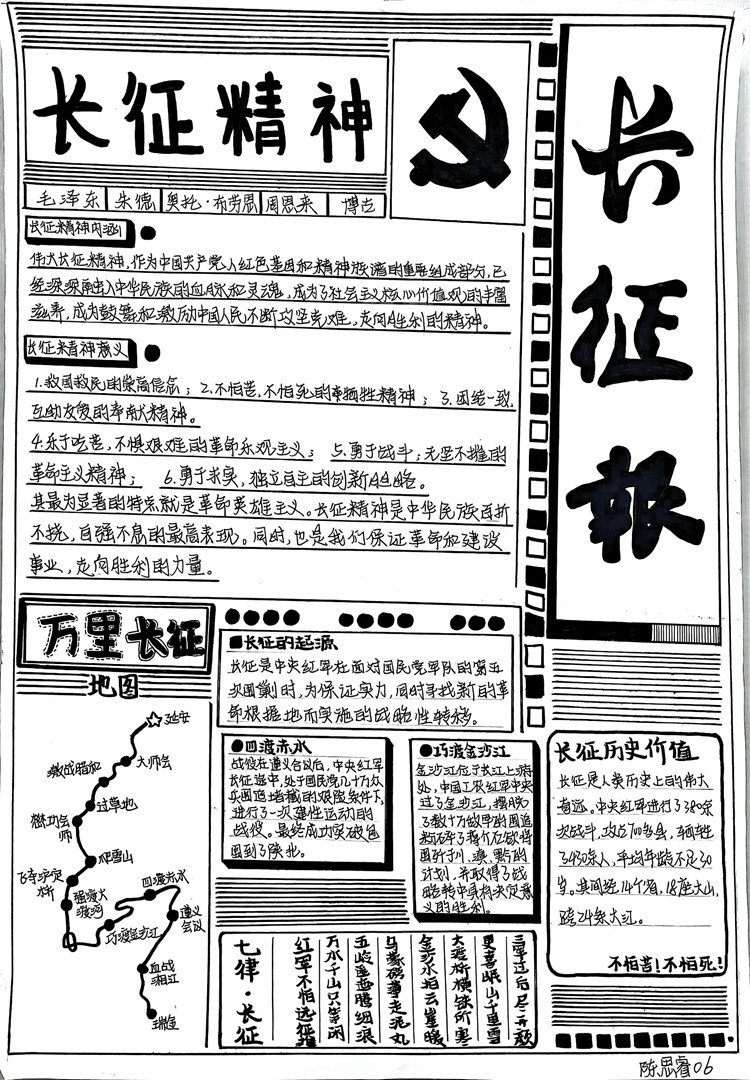 长征精神
长征報
毛泽东 朱德 奥托·布劳恩 周恩来 博古
长征精神内涵
伟大长征精神，作为中国共产党人红色基因和精神族谱的重要组成部分，已
经深深融入中华民族的血脉和灵魂，成为了社会主义核心价值观的丰富
滋养，成为鼓舞和激励中国人民不断攻坚克难，走向胜利的精神。
长征精神意义
1.救国救民的崇高信念；2.不怕苦，不怕死的牺牲精神；3.团结一致，
互助友爱的奉献精神。
4.乐于吃苦，不惧艰难的革命乐观主义；5.勇于战斗；无坚不摧的
革命主义精神；6.勇于求实，独立自主的创新
其最为显著的特点就是革命英雄主义。长征精神是中华民族百折
不挠，自强不息的最高表现。同时，也是我们保证革命和建设
事业，走向胜利的力量。
万里长征
地图
延安
大师会
激战腊和
过草地
懋功会
师
爬雪山
飞夺泸定
桥
强渡大
渡河
四渡赤水
遵义
会议
巧渡金沙江
血战
湘江
瑞金
■长征的起源
长征是中央红军在面对国民党军队的第五
次围剿时，为保证实力，同时寻找新的革
命根据地而实施的战略性转移。
■四渡赤水
战役在遵义会议后，中央红军
长征途中，处于国民党几十万众
兵围追堵截的艰险条件下，
进行了一次建性运动的
战役。最终成功突破包
围到了陕北。
■巧渡金沙江
金沙江位于长江上游
处，中国工农红军中央
过了金沙江，摆脱
了数十万敌军的围追
断了蒋介石欲将
围歼于川、滇、黔的
计划，并取得了战
略转中具有决定意
义的胜利。
长征历史价值
长征是人类历史上的伟大
奇迹。中央红军进行了380余
次战斗，攻占700多县，牺牲
了430余人，平均年龄不足30
岁。其间经14个省，18座大山，
跨24条大江。
不怕苦！不怕死！
七律·长征
红军不怕远征难
万水千山只等闲
五岭逶迤腾细浪
乌蒙磅礴走泥丸
金沙水拍云崖暖
大渡桥横铁索寒
更喜岷山千里雪
三军过后尽开颜
陈思睿06